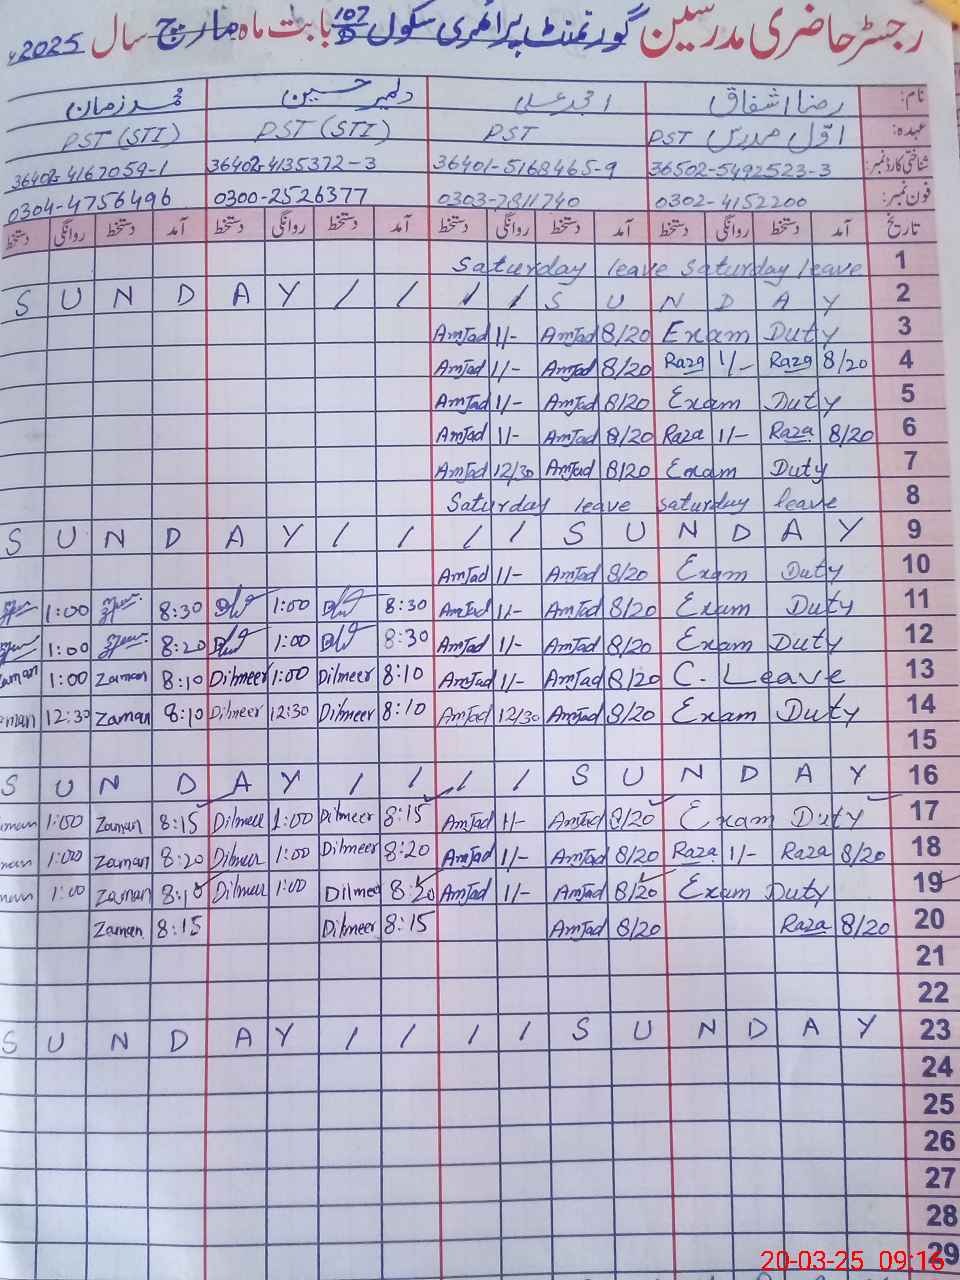 رجسٹر حاضری مدرسین گورنمنٹ پرائمری سکول 107/D بابت ماہ مارچ سال 2025ء
نام: رضا اشفاق امجد علی دلمیر حسین محمد زمان
عہدہ: اوّل مدرس PST PST PST (STI) PST (STI)
شناختی کارڈ نمبر: 36502-5492523-3 36401-5168465-9 36402-4135372-3 36402-4167059-1
فون نمبر: 0302-4152200 0303-7811740 0300-2526377 0304-4756496
تاریخ آمد دستخط روانگی دستخط آمد دستخط روانگی دستخط آمد دستخط روانگی دستخط آمد دستخط روانگی دستخط
Saturday leave Saturday leave 1
S U N D A Y / / / / S U N D A Y 2
Amjad 1/- Amjad 8/20 Exam Duty 3
Amjad 1/- Amjad 8/20 Raza 1/- Raza 8/20 4
Amjad 1/- Amjad 8/20 Exam Duty 5
Amjad 1/- Amjad 8/20 Raza 1/- Raza 8/20 6
Amjad 12/30 Amjad 8/20 Exam Duty 7
Saturday leave saturday leave 8
S U N D A Y / / / / S U N D A Y 9
Amjad 1/- Amjad 8/20 Exam Duty 10
1:00 8:30 1:00 8:30 Amjad 1/- Amjad 8/20 Exam Duty 11
1:00 8:20 1:00 8:30 Amjad 1/- Amjad 8/20 Exam Duty 12
Zaman 1:00 Zaman 8:10 Dilmeer 1:00 Dilmeer 8:10 Amjad 1/- Amjad 8/20 C. Leave 13
Zaman 12:30 Zaman 8:10 Dilmeer 12:30 Dilmeer 8:10 Amjad 12/30 Amjad 8/20 Exam Duty 14
15
S U N D A Y / / / / S U N D A Y 16
Zaman 1:00 Zaman 8:15 Dilmeer 1:00 Dilmeer 8:15 Amjad 1/- Amjad 8/20 Exam Duty 17
Zaman 1:00 Zaman 8:20 Dilmeer 1:00 Dilmeer 8:20 Amjad 1/- Amjad 8/20 Raza 1/- Raza 8/20 18
Zaman 1:00 Zaman 8:10 Dilmeer 1:00 Dilmeer 8:20 Amjad 1/- Amjad 8/20 Exam Duty 19
Zaman 8:15 Dilmeer 8:15 Amjad 8/20 Raza 8/20 20
21
22
S U N D A Y / / / / S U N D A Y 23
24
25
26
27
28
29
20-03-25 09:16